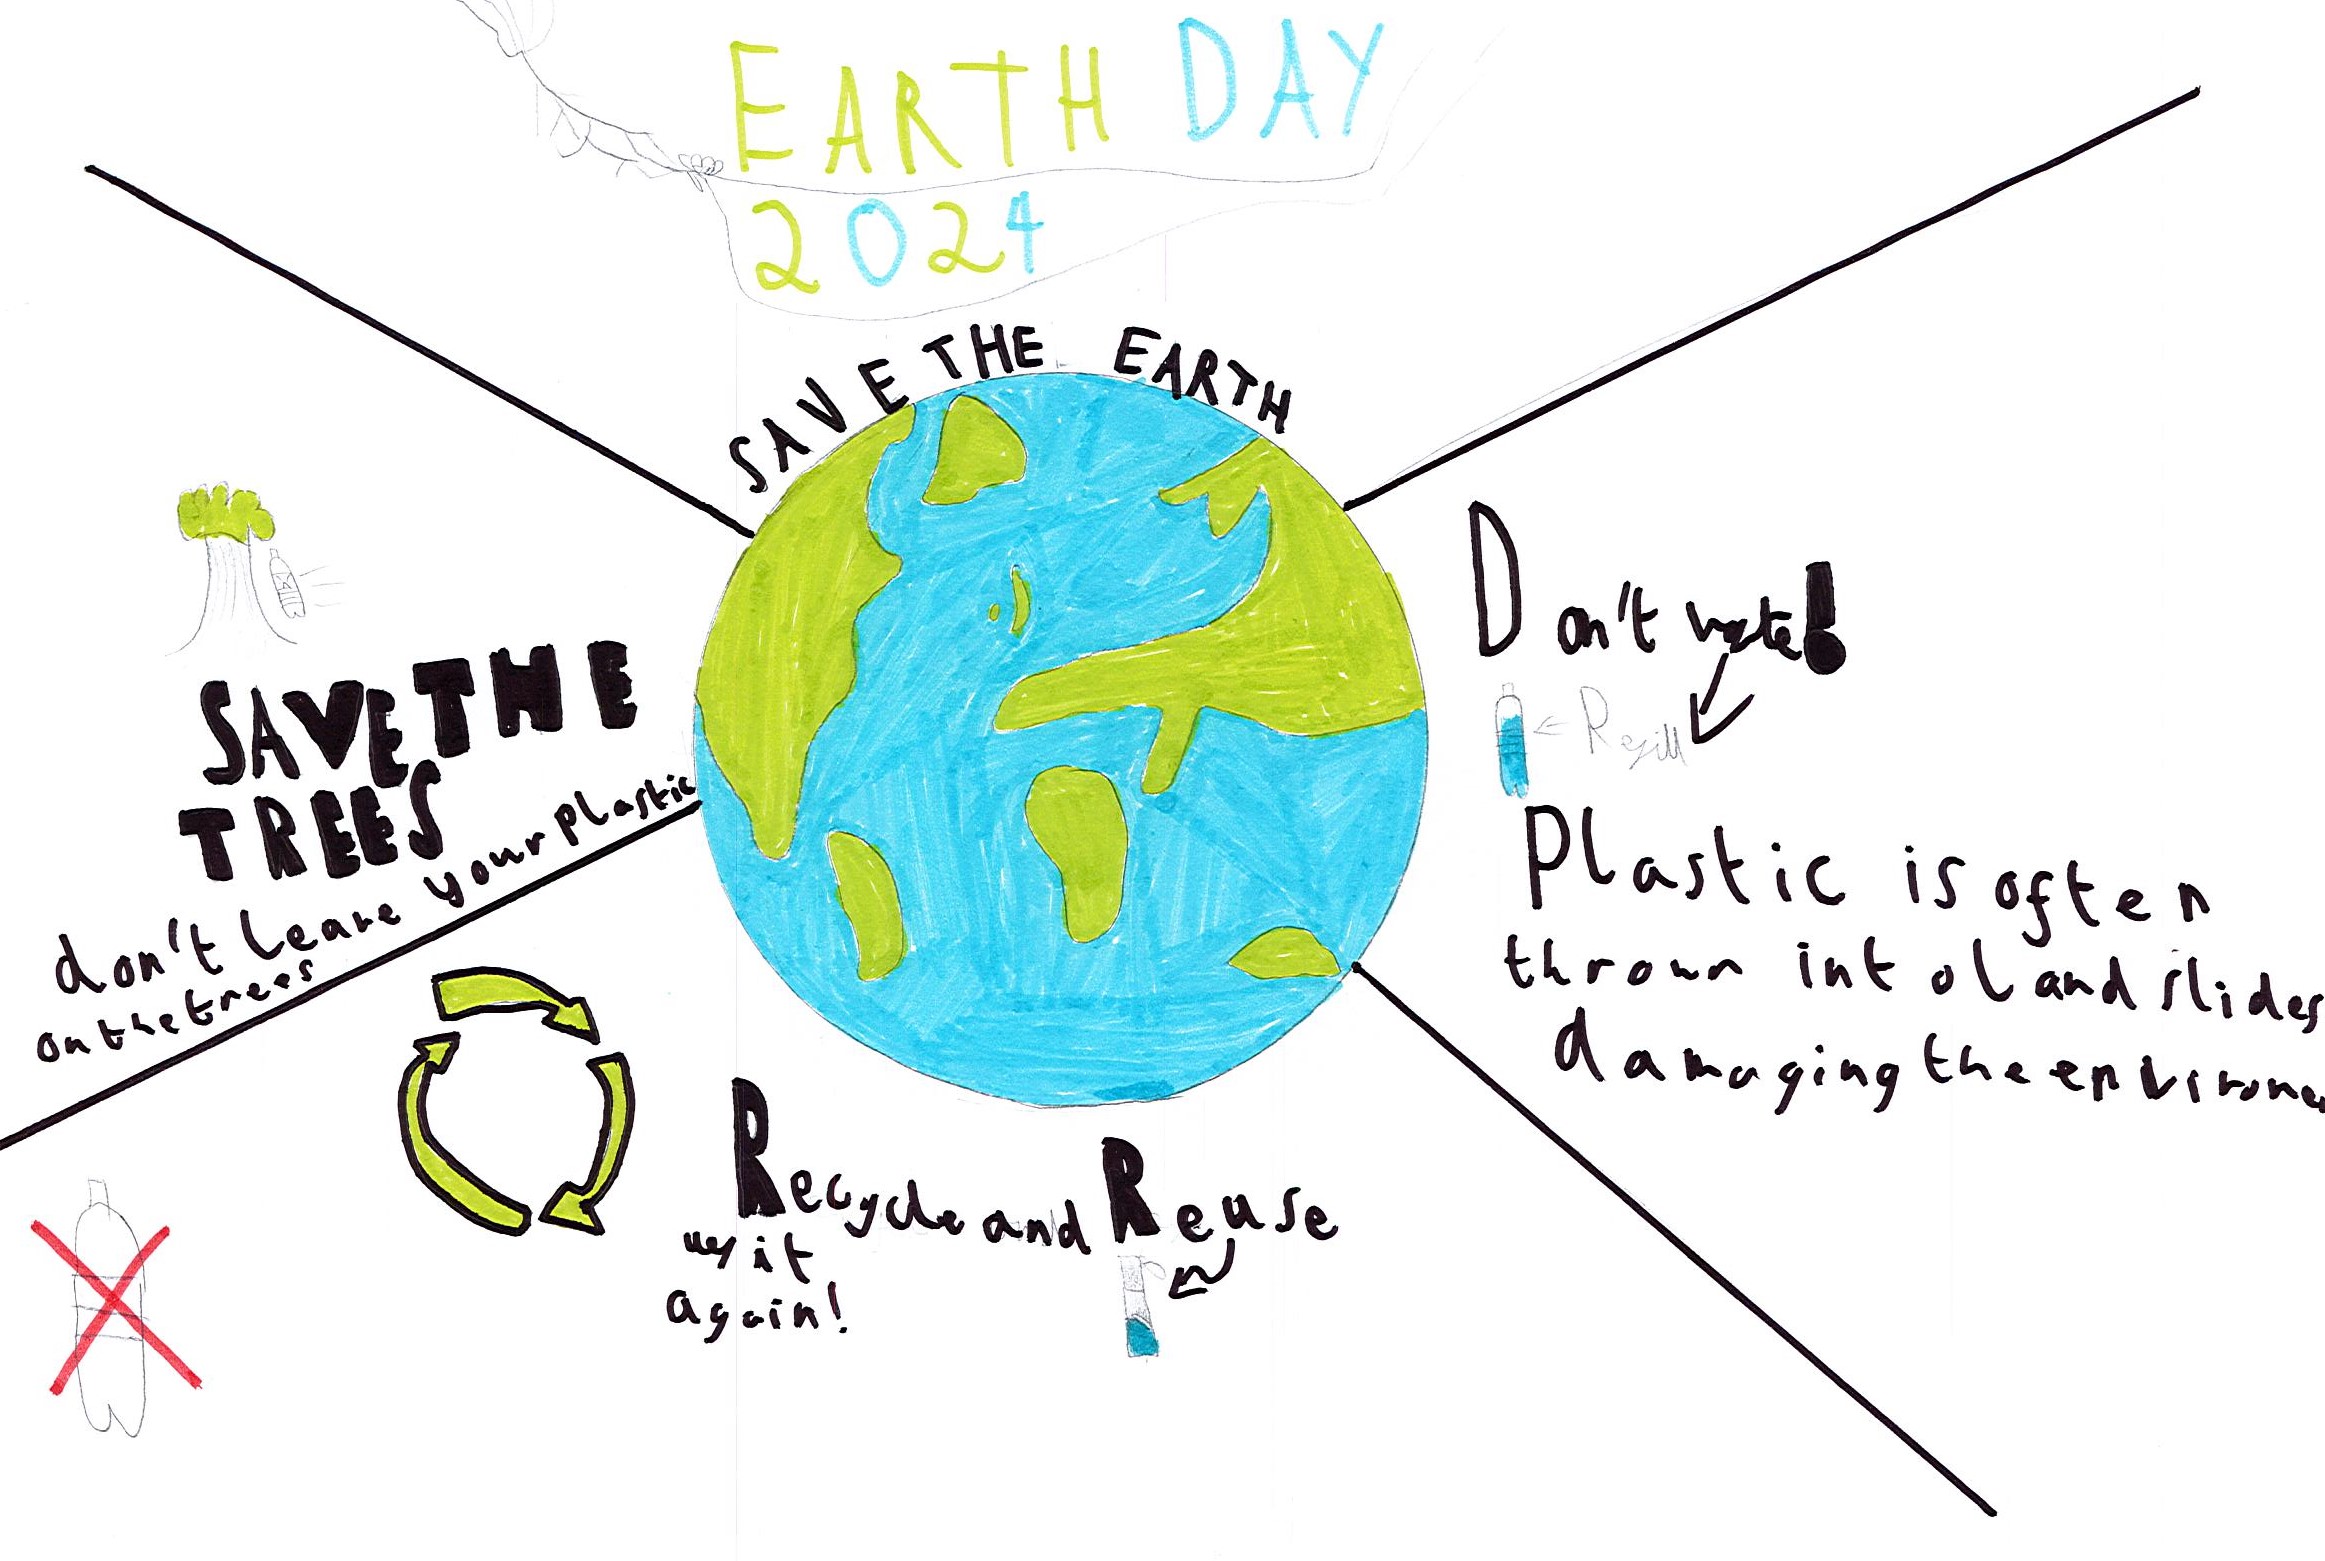 EARTH DAY
2024
SAVE THE EARTH
SAVE THE
TREES
don't leave your plastic
on the trees
Don't
Refill
Plastic is often
thrown into landslides
damaging the environe
Recycle and Reuse
it
again!